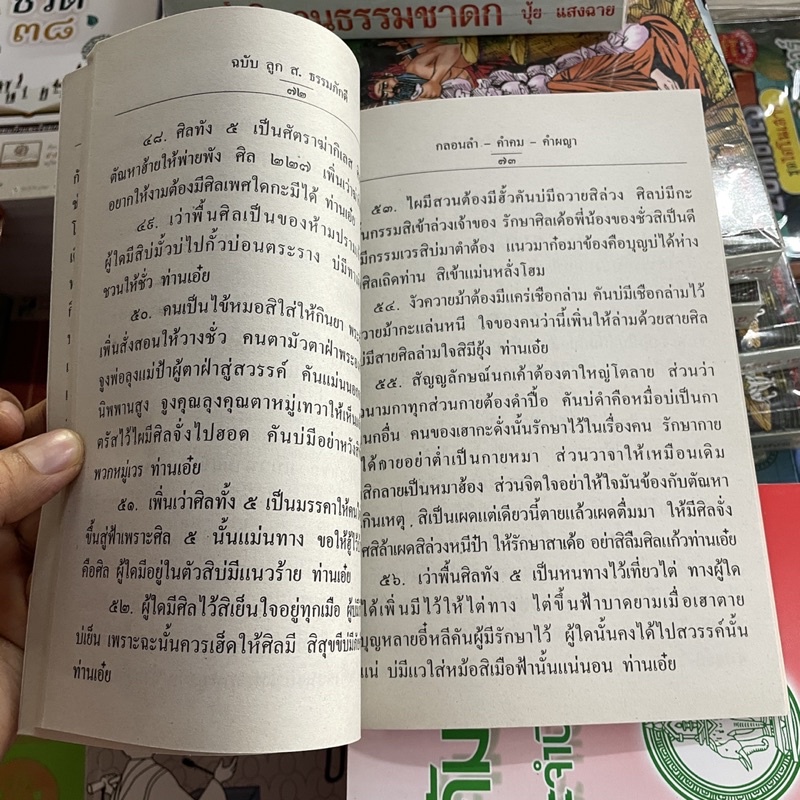 ชีวิต
๓๘
ธรรมชาดก ปุ้ย แสงฉาย
ฉบับ ลูก ส. ธรรมภักดี
๗๒
๔๘. ศิลทัง ๕ เป็นศัตราฆ่ากิเลส
ตัณหาฮ้ายให้พ่ายพัง ศิล ๒๒๗ เพิ่นเว่า
อยากให้งามต้องมีศิลเพศใดกะมีได้ ท่านเอ๋ย
๔๙. เว่าพื้นศิลเป็นของห้ามปราม
ผู้ใดมีสิบ่มั้วบ่ไปกั้วบ่อนตระราง บ่มีทาง
ชวนให้ชั่ว ท่านเอ๋ย
๕๐. คนเป็นไข้หมอสิใส่ให้กินยา
เพิ่นสั่งสอนให้วางชั่ว คนตามัวตาฝ่า
จูงพ่อลุงแม่ป้าผู้ตาฝ่าสู่สวรรค์ คันแม่น
นิพพานสูง จูงคุณลุงคุณตาหมู่เทวาให้เห็น
ตรัสไว้ไผมีศิลจั่งไปฮอด คันบ่มีอย่าหวัง
พวกหมู่เวร ท่านเอ๋ย
๕๑. เพิ่นเว่าศิลทั้ง ๕ เป็นมรรคาให้คน
ขึ้นสู่ฟ้าเพราะศิล ๕ นั้นแม่นทาง ขอให้ฮู้ไว้
คือศิล ผู้ใดมีอยู่ในตัวสิบ่มีแนวร้าย ท่านเอ๋ย
๕๒. ผู้ใดมีศิลไว้สิเย็นใจอยู่ทุกเมื่อ
บ่เย็น เพราะฉะนั้นควรเฮ็ดให้ศิลมี
ท่านเอ๋ย
กลอนลำ - คำคม - คำผญา
๗๓
๕๓. ไผมีสวนต้องมีฮั้วคันบ่มีถวายสิล่วง ศิลบ่มีกะ
นกรรมสิเข้าล่วงเจ้าของ รักษาศิลเด้อพี่น้องของชั่วสิเป็นดี
มีกรรมเวรสิบ่มาตำต้อง แนวมาก๋อมาข้องคือบุญบ่ได้ห่าง
ศิลเถิดท่าน สิเข้าแม่นหลั่งโฮม
๕๔. งัวควายม้าต้องมีแคร่เชือกล่าม คันบ่มีเชือกล่ามไว้
วายม้ากะแล่นหนี ใจของคนว่านี้เพิ่นให้ล่ามด้วยสายศิล
บ่มีสายศิลล่ามใจสิมียุ้ง ท่านเอ๋ย
๕๕. สัญญลักษณ์นกเค้าต้องตาใหญ่โตลาย ส่วนว่า
นามกาทุกส่วนกายต้องดำปื้อ คันบ่ดำคือหมื่อบ่เป็นกา
นกอื่น คนของเฮากะดั่งนั้นรักษาไว้ในเรื่องคน รักษากาย
ได้กายอย่าต่ำเป็นกายหมา ส่วนวาจาให้เหมือนเดิม
สิกลายเป็นหมาฮ้อง ส่วนจิตใจอย่าให้ใจมันข้องกับตัณหา
กินเหตุ. สิเป็นเผดแต่เดียวนี้ตายแล้วเผดตื่มมา ให้มีศิลจั่ง
ศสิล้าเผดสิล่วงหนีป๋า ให้รักษาสาเด้อ อย่าสิลืมศิลแก้วท่านเอ๋ย
๕๖. เว่าพื้นศิลทัง ๕ เป็นหนทางไว้เที่ยวไต่ ทางผู้ใด
ได้เพิ่นมีไว้ให้ไต่ทาง ไต่ขึ้นฟ้าบาดยามเมื่อเฮาตาย
บุญหลายอี่หลีคันผู้มีรักษาไว้ ผู้ใดนั้นคงได้ไปสวรรค์นั้น
แน่ บ่มีแวใส่หม้อสิเมือฟ้านั้นแน่นอน ท่านเอ๋ย